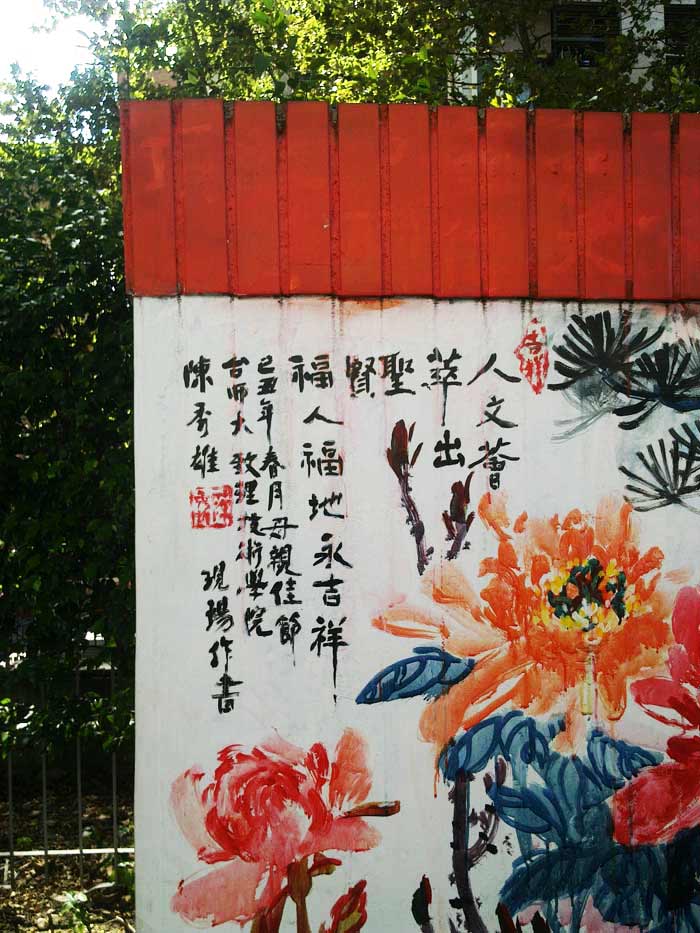 吉祥
人文薈
萃出
聖
賢
福人福地永吉祥
己丑年春月母親佳節
台師大致理技術學院
陳秀雄
現場作書